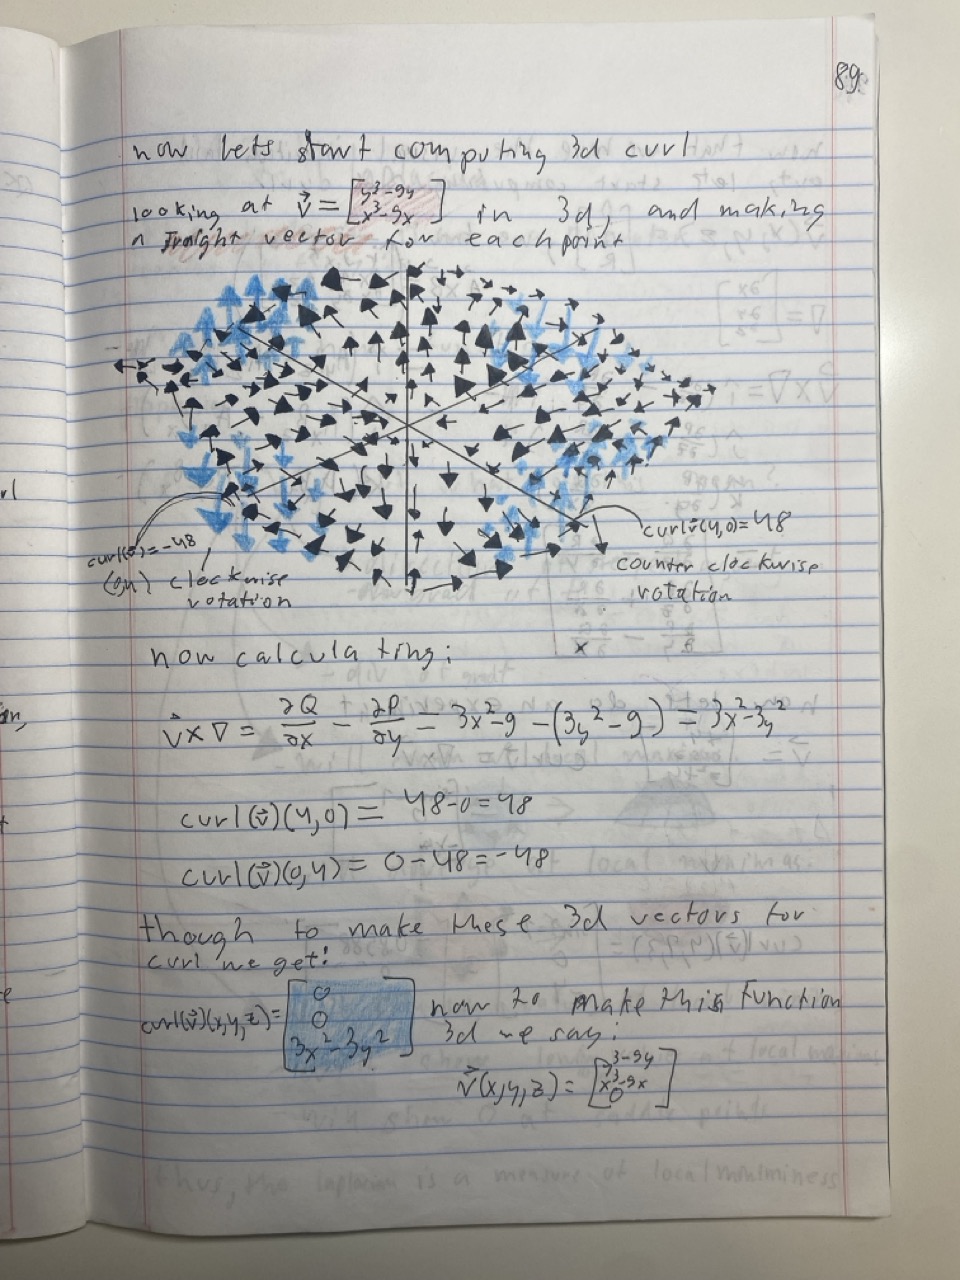 89
now lets start computing 3d curl
looking at v⃗ = [y³-9y x³-9x] in 3d, and making
a straight vector for each point
curl v⃗(4,0)=48
counter clockwise
rotation
curl(v⃗)=-48
(0,4) clockwise
rotation
now calculating:
v⃗ × ∇ = ∂Q/∂x - ∂P/∂y = 3x²-9 - (3y²-9) = 3x²-3y²
curl(v⃗)(4,0) = 48-0=48
curl(v⃗)(0,4) = 0-48=-48
though to make these 3d vectors for
curl we get:
curl(v⃗)(x,y,z)= [0 0 3x²-3y²] now to make this function
3d we say:
v⃗(x,y,z) = [y³-9y x³-9x 0]